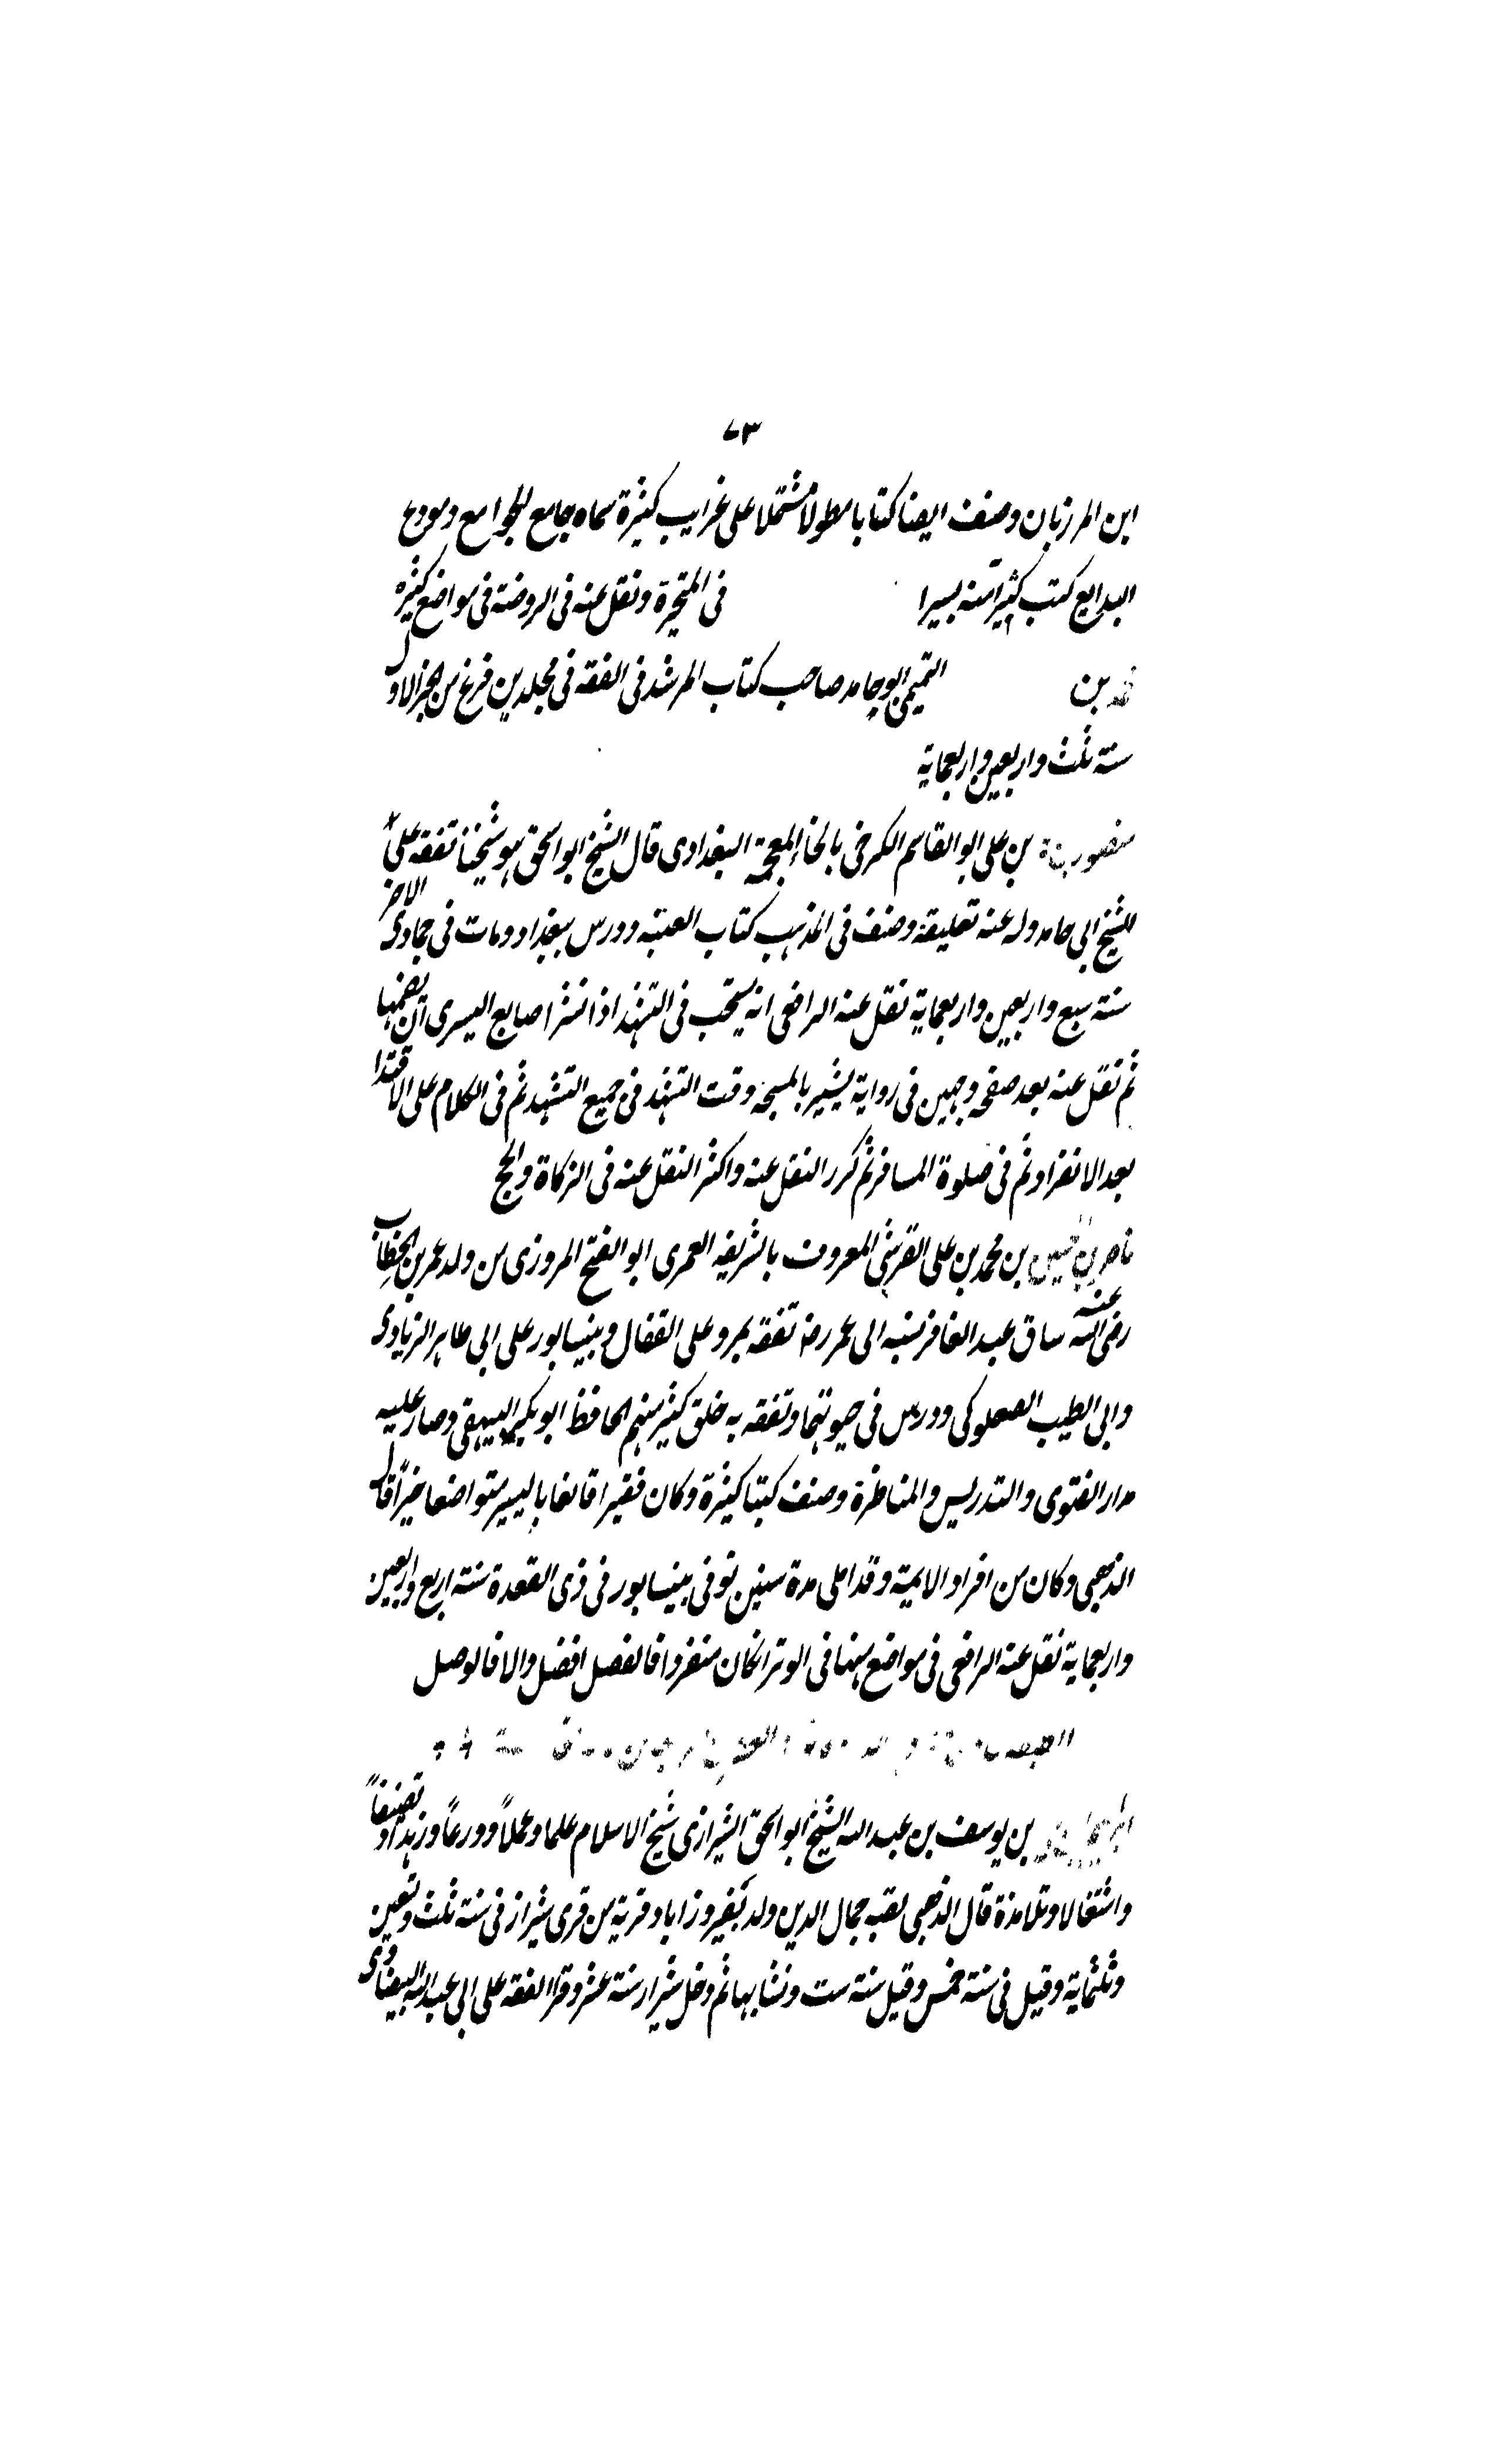 ٧٣
ابن المرزبان وصنف ايضا كتابا مطولا مشتملا على غرايب كثيرة سماه جامع الجوامع ومودع
البدايع كتب كثيرا منه يسيرا في المتحيرة ونقل عنه في الروضة في مواضع كثيرة
محمد بن التميمي ابو حامد صاحب كتاب المرشد في الفقه في مجلدين فرغ من الجزء الاول
سنة ثلث واربعين واربعماية
منصور بن على ابو القاسم الكرخي بالخاء المعجمة البغدادى قال الشيخ ابو اسحق هو شيخنا تفقه على
الشيخ ابي حامد وله عنه تعليقة وصنف في المذهب كتاب الغنية ودرس ببغداد ومات في جمادى الاخر
سنة سبع واربعين واربعماية نقل عنه الرافعى انه يستحب في التشهد اذا نشر اصابع اليسرى ان يضمها
ثم نقل عنه بعد صفحة وجهين في رواية يشير بالمسبحة وقت التشهد في جميع التشهد ثم في الكلام على الاقتدا
بعد الانفراد ثم في صلوة المسافر ثم كرر النقل عنه واكثر النقل عنه في الزكاة والحج
ناصر بن حسين بن محمد بن على القرشى المعروف بالشريف العمرى ابو الفتح المروزى من ولد عمر بن الخطاب
رضى الله عنه ساق عبد الغافر نسبه الى عمر رضـ تفقه بمرو على القفال وبنيسابور على ابى طاهر الزيادى
وابى الطيب الصعلوكى ودرس في حيوتهما وتفقه به خلق كثير منهم الحافظ ابو بكر البيهقى وصار عليه
مدار الفتوى والتدريس والمناظرة وصنف كتبا كثيرة وكان فقيرا قانعا باليسير متواضعا خيرًا قال
الذهبى وكان من افراد الايمة وقد املى مدة سنين توفى بنيسابور في ذى القعدة سنة اربع واربعين
واربعماية نقل عنه الرافعى في مواضع منها في الوتر ان كان منفردا فالفصل افضل والا فالوصل
الطبقة
ابراهيم بن على بن يوسف بن عبد الله الشيخ ابو اسحق الشيرازى شيخ الاسلام علما وعملاً وورعاً وزهدا وتصنيفاً
واشتغالا وتلامذة قال الذهبى لقبه جمال الدين ولد بفيروزاباد قرية من قرى شيراز في سنة ثلث وتسعين
وثلثماية وقيل في سنة خمس وقيل سنة ست ونشا بها ثم دخل شيراز سنة عشر وقرا الفقه على ابى عبد الله البيضاوى